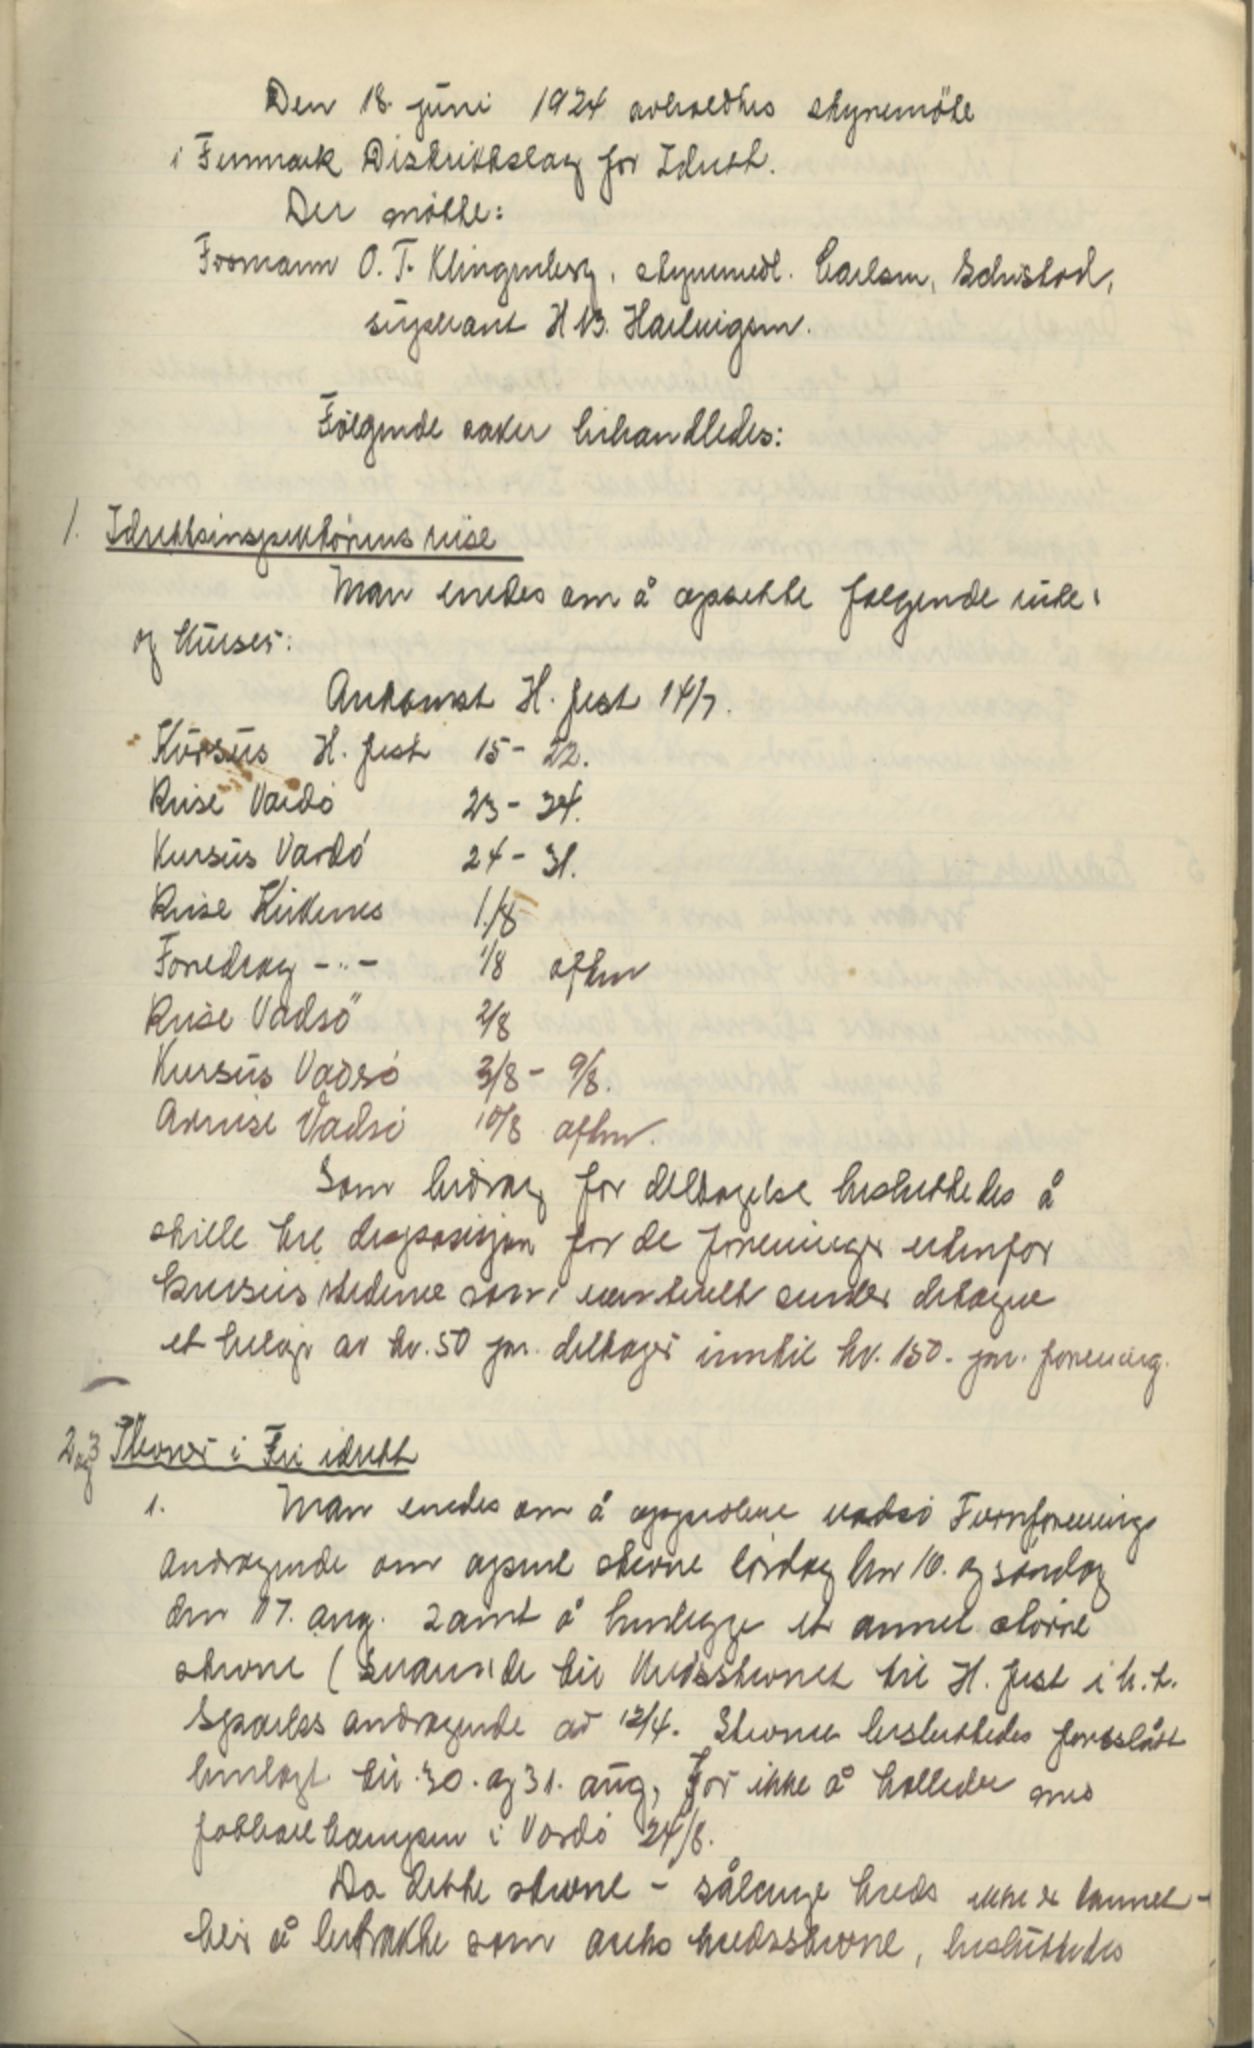 Den 18. juni 1924 avholdtes styremöte
i Finnmark Distriktslag for Idrett.
Der mötte:
Formann O. T. Klingenberg, styremedl. Carlsen, Schistad,
supleant H. B. Hartvigsen.
Følgende saker behandledes:
1. Idrettsinspektörens reise
Man enedes om å opsette følgende rute
og kurser:
Ankomst H. fest 14/7.
Kursus H. fest 15 - 22.
Reise Vardö 23 - 24.
Kursus Vardö 24 - 31.
Reise Kirkenes 1./8
Foredrag -"- 1/8 aften
Reise Vadsö 2/8
Kursus Vadsö 3/8 - 9/8.
Avreise Vadsö 10/8 aften.
Som bidrag for deltagelse besluttedes å
stille til disposisjon for de foreninger utenfor
kursusstedene som eventuelt sender deltagere
et beløp av kr. 50 pr. deltager inntil kr. 150.- pr. forening.
2 og 3 Stevner i Fri idrett
1. Man enedes om å approbere Vadsö Turnforenings
andragende om åpent stevne lördag den 16. og söndag
den 17. aug. samt å henlegge et annet större
stevne (svarende til kredsstevnet til H. fest i h.t.
Sparks andragende av 12/4. Stevnet besluttedes foreslått
henlagt til 30. og 31. aug, for ikke å kollidere med
fotballkampen i Vardö 24/8.
Da dette stevne - sålenge kreds ikke er dannet -
blir å betrakte som kredsstevne, besluttedes